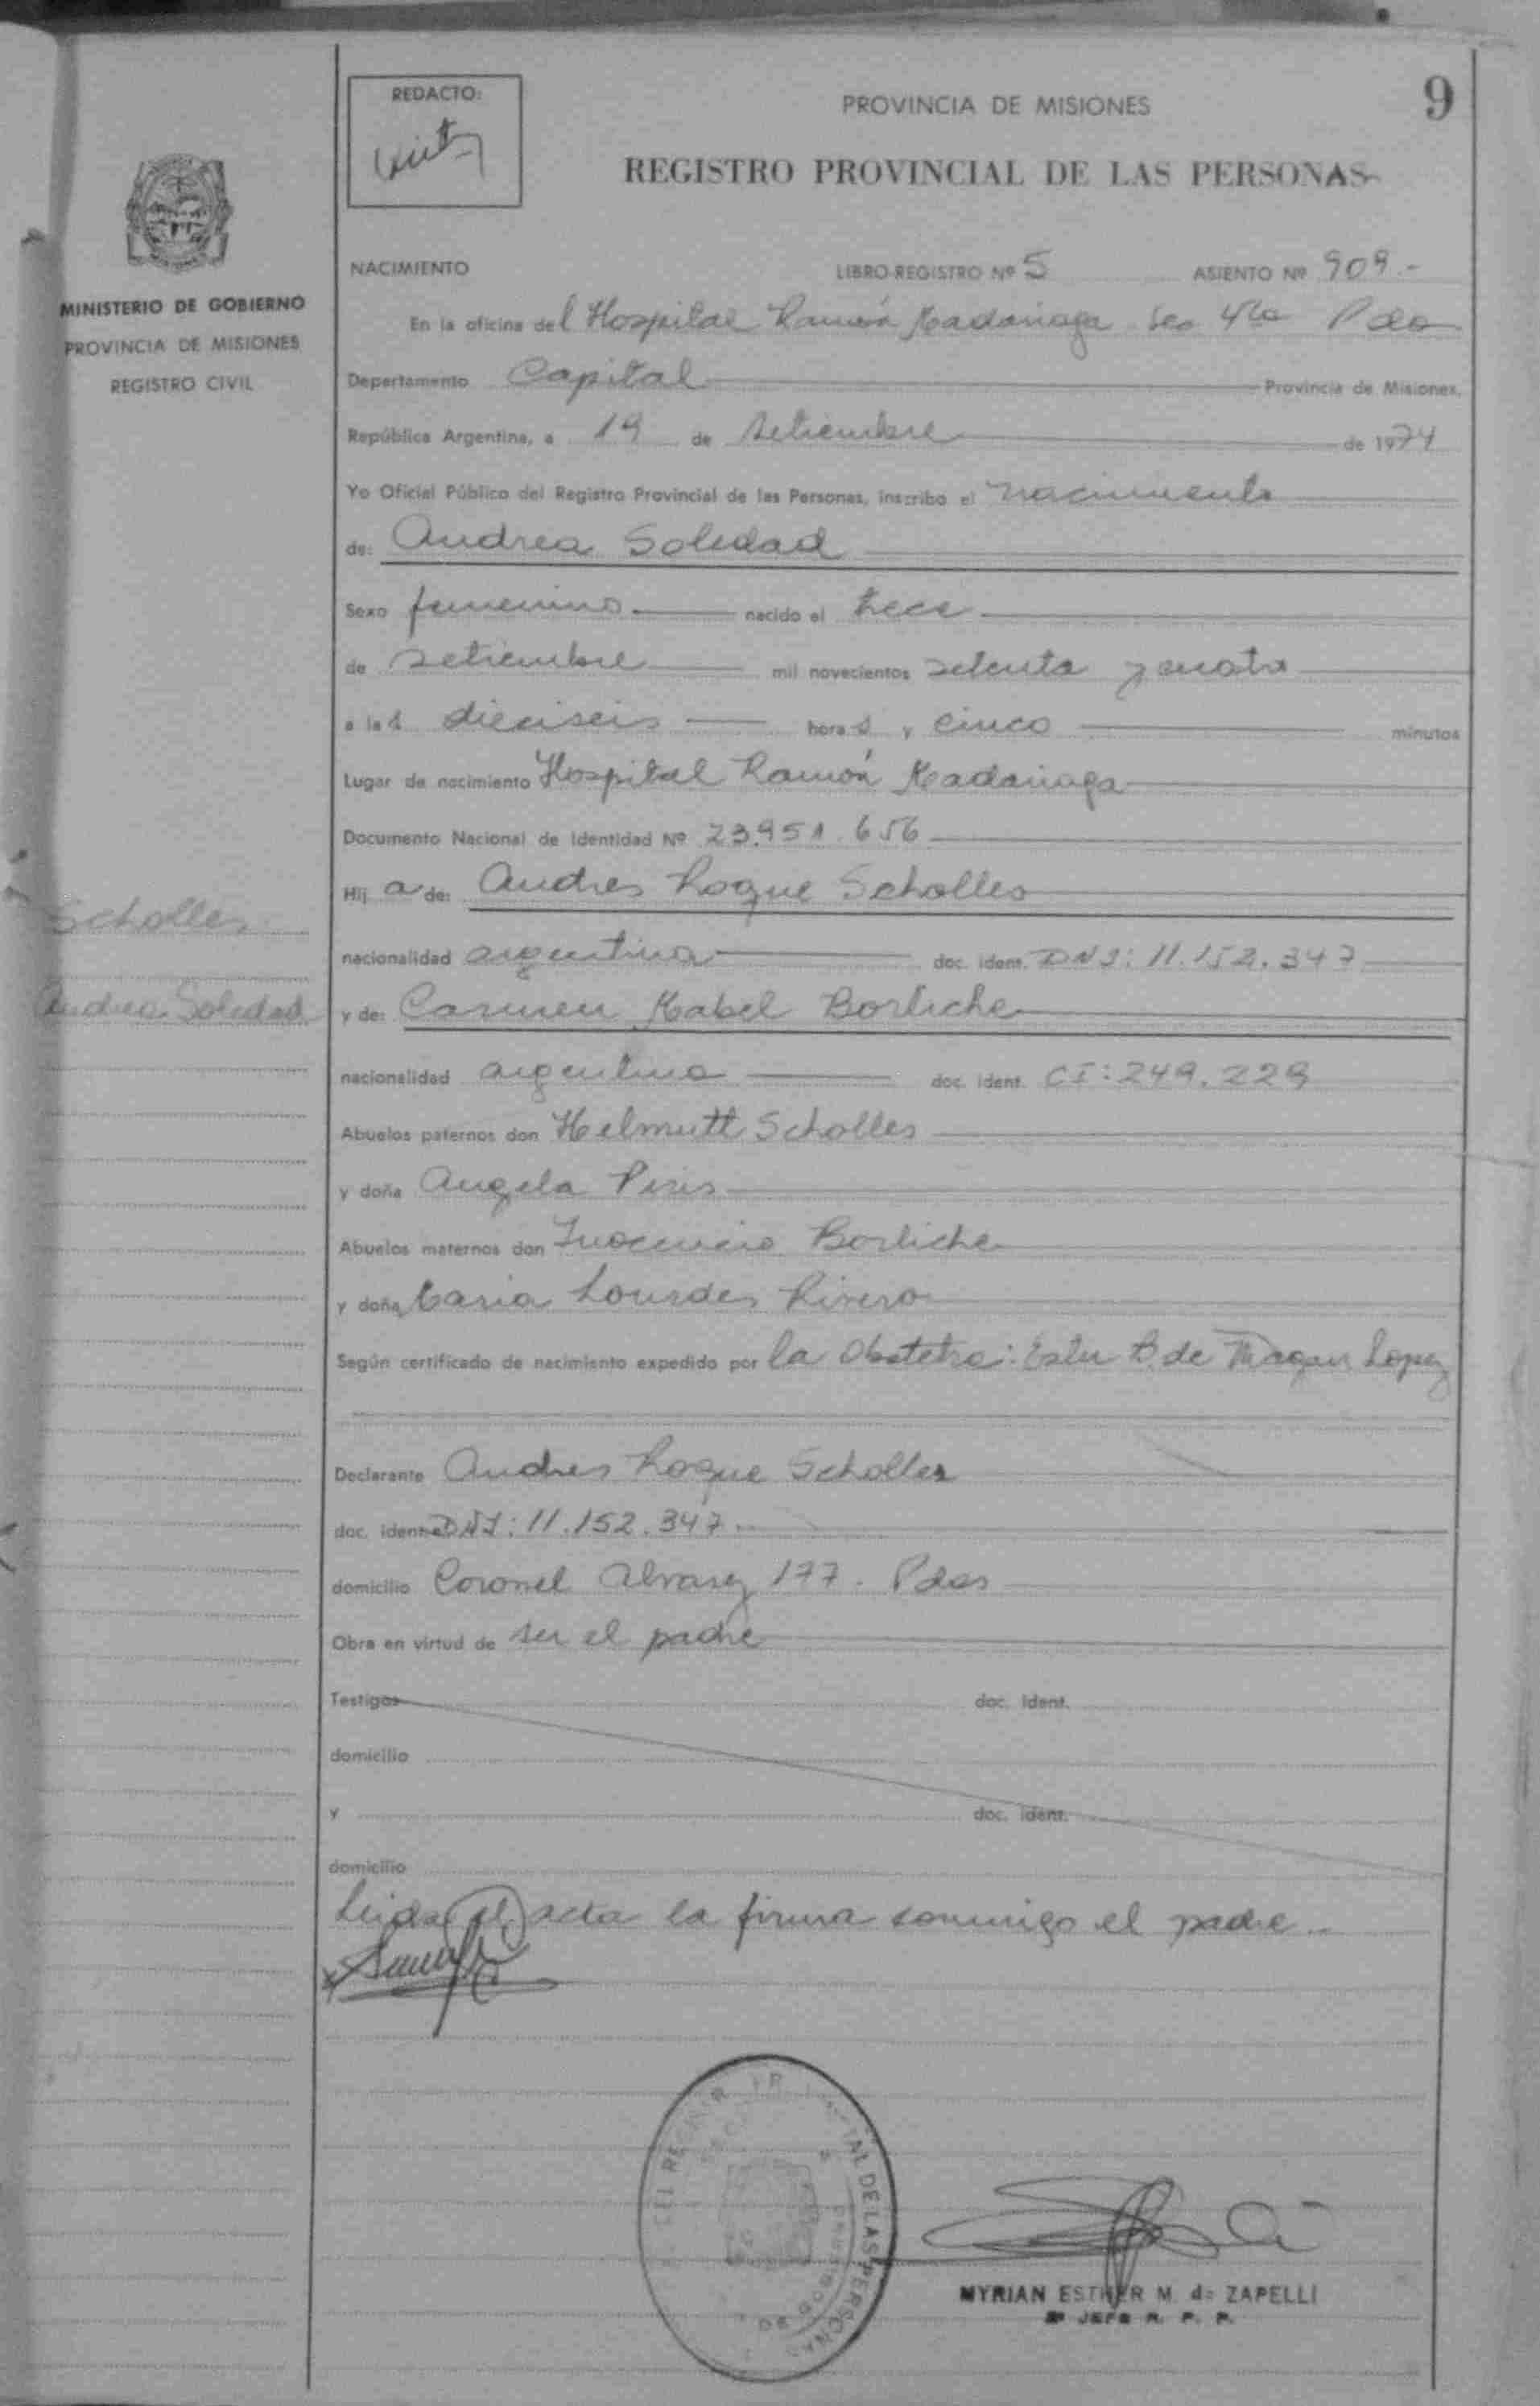 REDACTO:
PROVINCIA DE MISIONES
9
REGISTRO PROVINCIAL DE LAS PERSONAS
MINISTERIO DE GOBIERNO
PROVINCIA DE MISIONES
REGISTRO CIVIL
NACIMIENTO LIBRO-REGISTRO Nº 5 ASIENTO Nº 909.-
En la oficina del Hospital Ramón Madariaga Sec 4ta Pdas
Departamento Capital Provincia de Misiones,
República Argentina, a 19 de setiembre de 1974
Yo Oficial Público del Registro Provincial de las Personas, inscribo el nacimiento
de: Andrea Soledad
Sexo femenino nacido el trece
de setiembre mil novecientos setenta y cuatro
a las dieciseis horas y cinco minutos
Lugar de nacimiento Hospital Ramón Madariaga
Documento Nacional de Identidad Nº 23.951.656
Hij a de: Andres Roque Scholles
Scholles
nacionalidad argentina doc. ident. DNI: 11.152.347
Andrea Soledad
y de: Carmen Mabel Borliche
nacionalidad argentina doc. ident. CI: 249.229
Abuelos paternos don Helmutt Scholles
y doña Angela Piris
Abuelos maternos don Inocencio Borliche
y doña Maria Lourdes Rivero
Según certificado de nacimiento expedido por la Obstetra: Ester B. de Lopez
Declarante Andres Roque Scholles
doc. ident. DNI: 11.152.347.
domicilio Coronel Alvarez 177. Pdas
Obra en virtud de ser el padre
Testigos doc. ident.
domicilio
y doc. ident.
domicilio
Leida el acta la firma conmigo el padre
DE LAS PERSONAS
MYRIAN ESTHER M. de ZAPELLI
JEFE R. P. P.